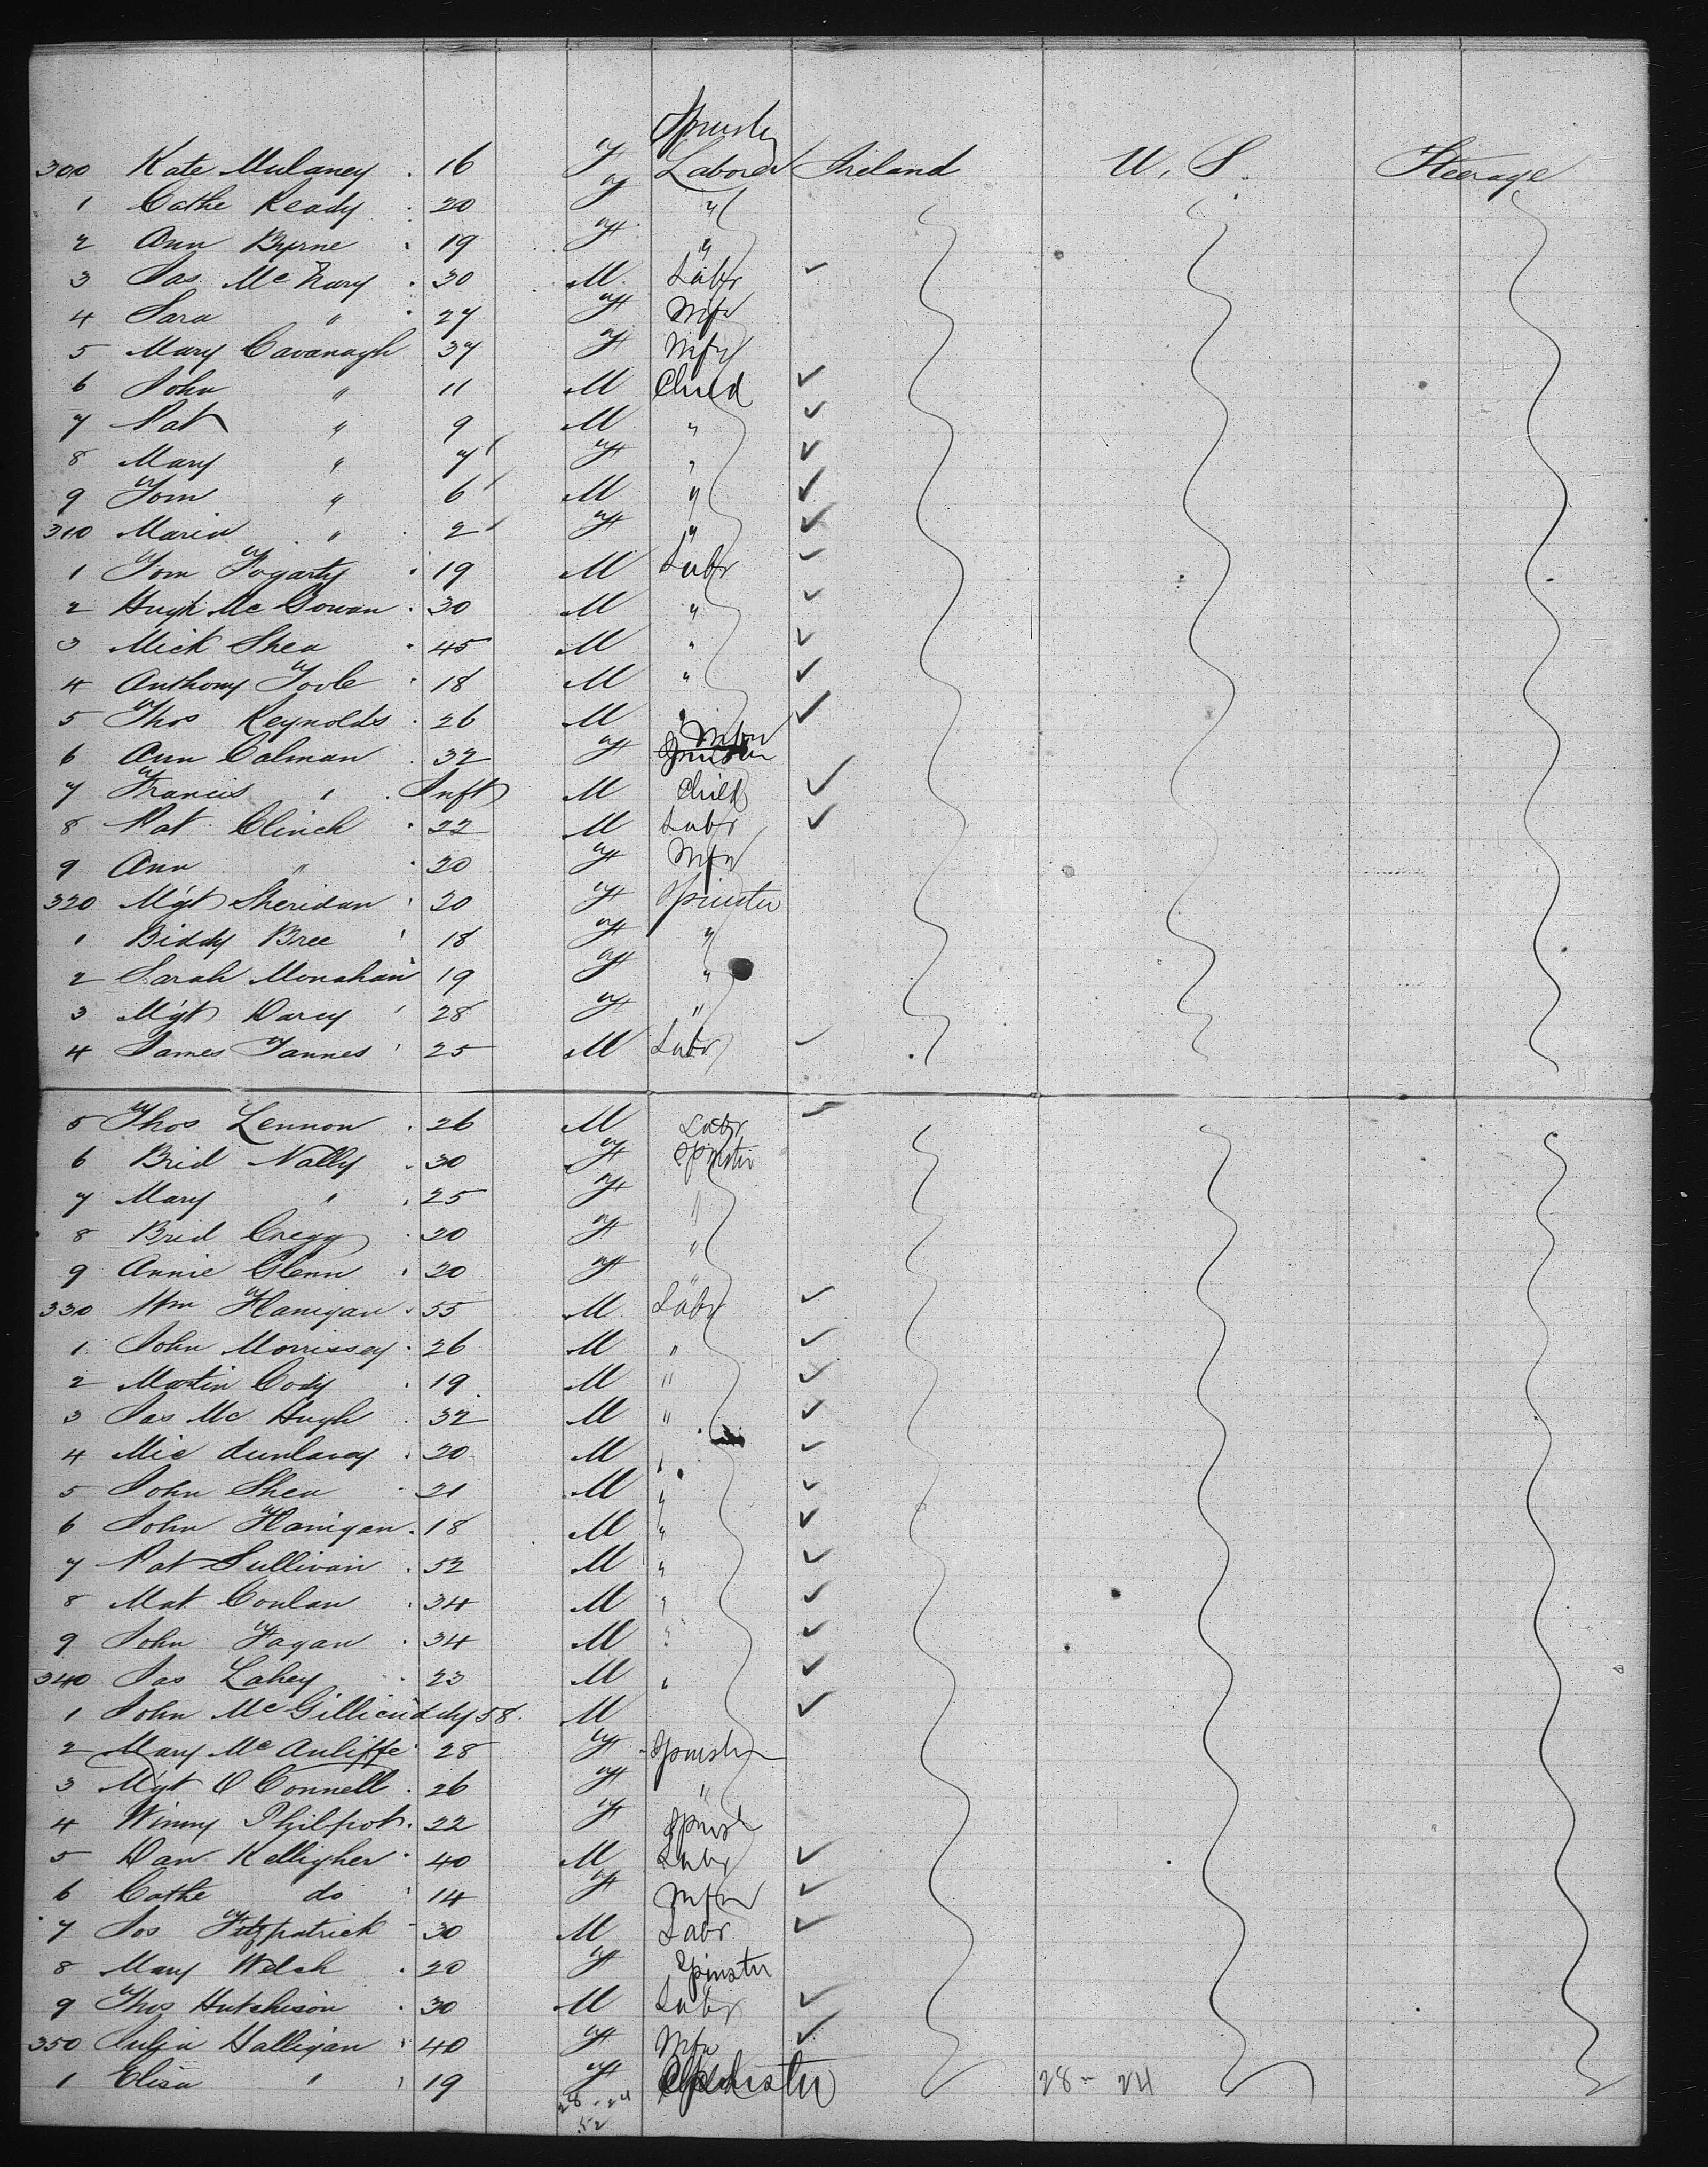 Spinster
300 Kate Mulaney . 16 F Laborer Ireland U. S. Steerage
1 Cathe Ready . 20 F "
2 Ann Byrne . 19 F "
3 Jas. Mc Nary . 30 M Labr ✓
4 Sara " . 27 F Wife
5 Mary Cavanagh 37 F Wife
6 John " 11 M Child ✓
7 Pat " 9 M " ✓
8 Mary " 7 F " ✓
9 Tom " 6 M " ✓
310 Maria " 2 F " ✓
1 Tom Fogarty . 19 M Labr ✓
2 Hugh Mc Gowan . 30 M " ✓
3 Mick Shea . 45 M " ✓
4 Anthony Toole . 18 M " ✓
5 Thos Reynolds . 26 M " ✓
6 Ann Colman . 32 F Spinster Wife
7 Francis " . Inft M Child ✓
8 Pat Clinch . 22 M Labr ✓
9 Ann " . 20 F Wife
320 Mgt Sheridan . 20 F Spinster
1 Biddy Bree . 18 F "
2 Sarah Monahan 19 F "
3 Mgt Darcy . 28 F "
4 James Tannes . 25 M Labr ✓
5 Thos Lennon . 26 M Labr ✓
6 Brid Nally . 30 F Spinster
7 Mary " . 25 F "
8 Brid Cregg . 20 F "
9 Annie Glenn . 20 F
330 Wm Flanigan . 55 M Labr ✓
1 John Morrissey . 26 M " ✓
2 Martin Cody . 19 M " ✓
3 Jas Mc Hugh . 32 M " ✓
4 Mic dunlavey . 20 M " ✓
5 John Shea . 21 M " ✓
6 John Flanigan . 18 M " ✓
7 Pat Sullivan . 52 M " ✓
8 Mat Conlan . 34 M " ✓
9 John Fagan . 34 M " ✓
340 Jas Lahey . 23 M " ✓
1 John McGillicuddy 58. M ✓
2 Mary Mc Auliffe 28 F Spinster
3 Mgt O Connell . 26 F "
4 Winny Philpot . 22 F Spinst
5 Dan Kelligher . 40 M Labr ✓
6 Cathe do . 14 F Wife ✓
7 Jos Fitzpatrick 30 M Labr ✓
8 Mary Welch . 20 F Spinster
9 Thos Hutchison . 30 M Labr ✓
350 Julia Halligan . 40 F Wife ✓
1 Elisa " . 19 F Spinster 28 - 24
28 - 24
52